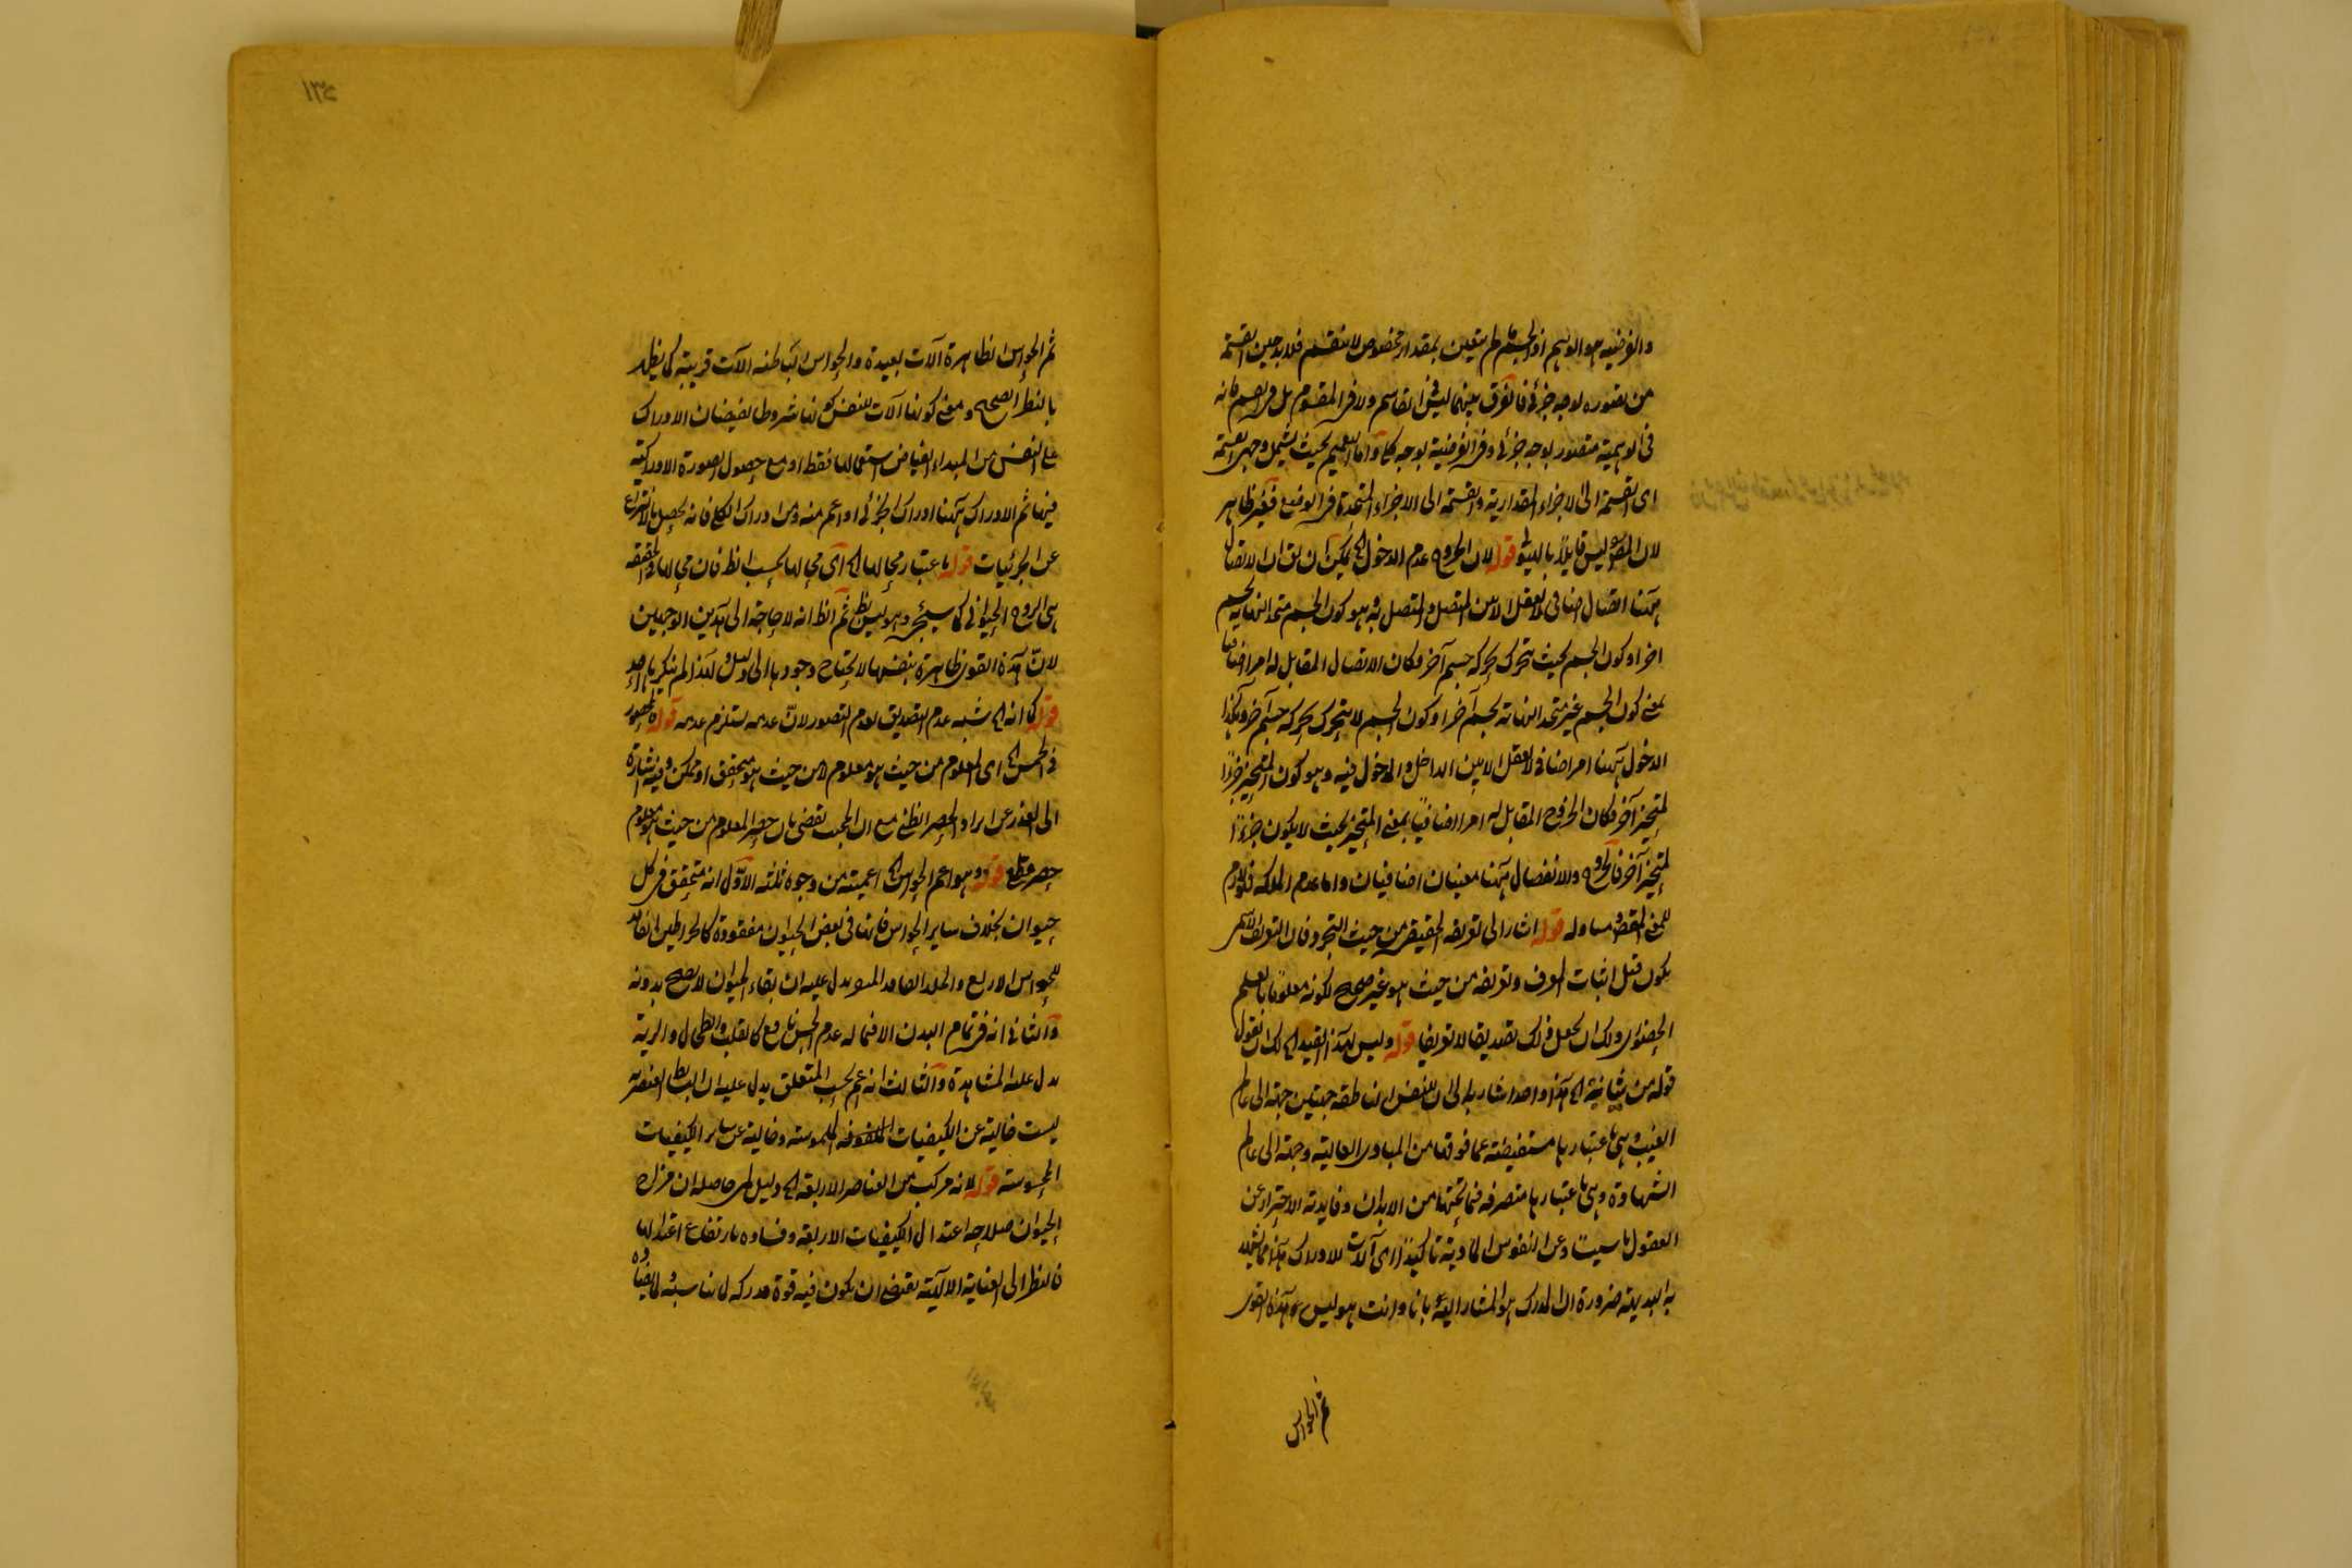 والفرضيه هو الوهم اذ الجسم لم يتعين بمقدار مخصوص لا ينقسم فلا بد حين القسمة
من تصوره لا وجه جزئي فالفرق بينهما ليس في القاسم ولا في المقسوم بل في القسم فانه
في الوهمية متصور بوجه جزئي وفي الفرضية بوجه كلي واما التعميم بحيث يشمل وجهي القسمة
اى القسمة الى الاجزاء المقدارية والقسمة الى الاجزاء المتحدة في الوضع فغير ظاهر
لان ليس قابلا بالهيولى قوله لان الخروج عدم الدخول الخ يمكن ان يق ان الاتصال
ههنا اتصال اضافى لا يعقل الا بين المتصل والمتصل به وهو كون الجسم متحد النهاية بجسم
اخر او كون الجسم بحيث يتحرك بحركه جسم آخر فكان الاتصال المقابل له امرا اضافيا
بمعنى كون الجسم غير متحد النهاية بجسم آخر او كون الجسم لا يتحرك بحركه جسم آخر وكذا
الدخول ههنا امر اضافى لا يعقل الا بين الداخل والدخول فيه وهو كون المتحيز جزءا
لمتحيز آخر فكان الخروج المقابل له امرا اضافيا بمعنى المتحيز بحيث لا يكون جزءا
لمتحيز آخر فالخروج والانفصال ههنا معنيان اضافيان واما عدم الملكه فلازم
للمعنى المقصود مساو له قوله اشار الى تعريفه الحقيقي من حيث التجرد فان التعريف الاسمى
يكون قبل اثبات المعرف وتعريفه من حيث هو غير صحيح لكونه معلوما بالعلم
الحضورى ولك ان تجعل ذلك تصديقا لا تعريفا قوله وليس لهذا القيد الخ لك ان تقول
قوله من شانية الخ هذا واحد اشار به الى ان للنفس الناطقه جهتين جهة الى عالم
الغيب وهى باعتبارها مستفيضة عما فوقها من المبادى العالية وجهة الى عالم
الشهادة وهى باعتبارها متصرفه فيما تحتها من الابدان وفايدته الاحتراز عن
العقول وعن النفوس المادية تاكيدا اى آلات للادراك هذا مما يشهد
به البديهة ضرورة ان المدرك هو المشار اليه بانا وانت هو ليس هذه القوى
ثم الحواس
١٣٤
ثم الحواس الظاهرة آلات بعيدة والحواس الباطنه آلات قريبة كما يظهر
بالنظر الصحيح ومعنى كونها آلات للنفس كونها شروطا لفيضان الادراك
على النفس من المبداء الفياض استعمالها فقط او مع حصول الصورة الادراكية
فيها ثم الادراك ههنا ادراك الجزئى او اعم منه ومن ادراك الكلى فانه يحصل بالانتزاع
عن الجزئيات قوله باعتبار محالها الخ اى محالها بحسب الظ فان محالها بالحقيقه
هى الروح الحيوانى كما سيجئ وهو ليس بظ ثم الظ انه لا حاجة الى هذين الوجهين
لان هذه القوى ظاهرة بنفسها لا يحتاج وجودها الى دليل ولهذا لم ينكرها احد
قوله كما انه الخ شبه عدم التصديق لعدم التصور لان عدمه يستلزم عدمه قوله محصور
فى الخمس الخ اى المعلوم من حيث هو معلوم لا من حيث هو متحقق او ممكن وفيه اشارة
الى العذر عن ايراد الحصر الظنى مع ان المحب يقتضى بان حصر المعلوم من حيث هو معلوم
حصر قطعى قوله وهو اعم الحواس الخ اعميته من وجوه ثلثه الاول انه متحقق فى كل
حيوان بخلاف ساير الحواس فانها فى بعض الحيوان مفقودة كالخراطين الفاقد
للحواس الاربع والخلد الفاقد البصر يدل عليه ان بقاء الحيوان لا يصح بدونه
والثانى انه فى تمام البدن الا فيما له عدم الحس نافع كالقلب والطحال والرية
يدل عليه المشاهدة والثالث انه اعم بحسب المتعلق يدل عليه ان البسايط العنصريه
ليست خالية عن الكيفيات الملموسة وخالية عن ساير الكيفيات
المحسوسة قوله لانه مركب من العناصر الاربعه الخ دليل لمى حاصله ان مزاج
الحيوان صلاحه اعتدال الكيفيات الاربعه وفساده بارتفاع اعتدالها
فالنظر الى العناية الالهية يقتضى ان يكون فيه قوة مدركه لما يناسبه ولما يضاده